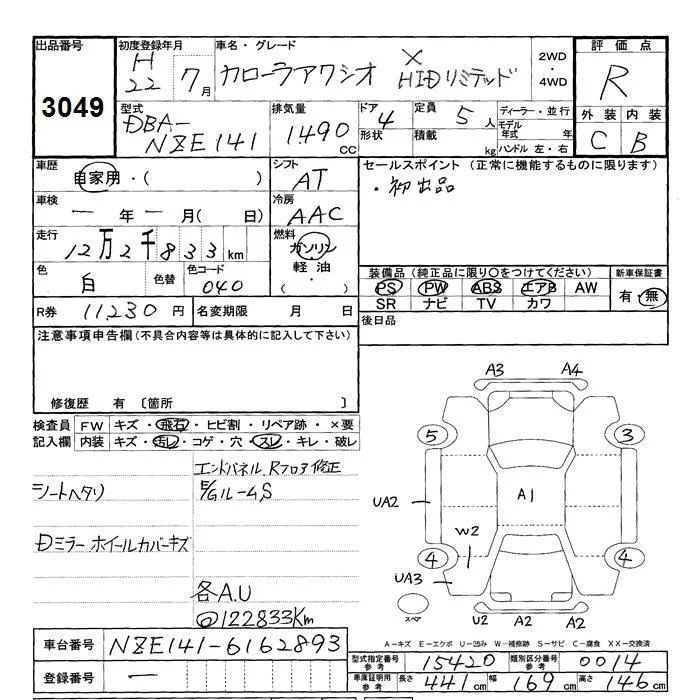 出品番号 初度登録年月 車名・グレード 評価点
3049 H22 7月 カローラアクシオ X HIDリミテッド 2WD・4WD R
型式 排気量 ドア 定員 ディーラー・並行 外装 内装
DBA-NZE141 1,490cc 4 5人 モデル年式 年 C B
形状 積載 kg ハンドル 左・右
車歴 自家用・( ) シフト AT セールスポイント (正常に機能するものに限ります)
・初出品
車検 一年一月( 日) 冷房 AAC
走行 12万2千833km 燃料 ガソリン・軽油・( )
色 白 色替 色コード 040
装備品 (純正品に限り○をつけてください) 新車保証書
PS PW ABS エアB AW 有・無
SR ナビ TV カワ
R券 11,230円 名変期限 月 日 後日品
注意事項申告欄(不具合内容等は具体的に記入して下さい)
修復歴 有 〔箇所 〕
検査員 FW キズ・飛石・ヒビ割・リペア跡・×要
記入欄 内装 キズ・汚レ・コゲ・穴・スレ・キレ・破レ
エンドパネル、Rフロア修正
シートヘタリ E/Gルーム,S
Dミラー ホイールカバーキズ
各A.U
@122833Km
A3 A4
5 3
UA2 A1
W2
4 4
UA3
スペア U2 A2 A2
A-キズ E-エクボ U-凹み W-補修跡 S-サビ C-腐食 XX-交換済
車台番号 NZE141-6162893
登録番号 一
型式指定番号 参考 15420 類別区分番号 参考 0014
車庫証明用 参考 長さ 441cm 幅 169cm 高さ 146cm